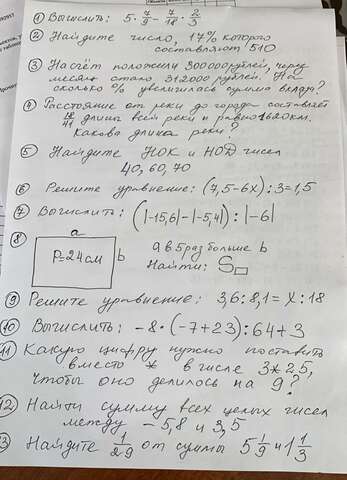 1) Вычислить: 5 · 7/9 − 7/18 · 2/3
2 Найдите число, 17% которого
составляют 510
3 На счёт положили 300000 рублей, через
месяц стало 312000 рублей. На
сколько % увеличилась сумма вклада?
4 Расстояние от реки до города составляет
длины всей реки и равно 1620 км.
Какова длина реки?
5 Найдите НОК и НОД чисел
40, 60, 70
6 Решите уравнение: (7,5−6х):3=1,5
7 Вычислить: (|−15,6|−|−5,4|):|−6|
8 a
P=24см b а в 5 раз больше b
Найти: S▭
9 Решите уравнение: 3,6:8,1=х:18
10 Вычислить: −8·(−7+23):64+3
11 Какую цифру нужно поставить
вместо * в числе 3*25,
чтобы оно делилось на 9?
12 Найти сумму всех целых чисел
между −5,8 и 3,5
13 Найдите 1/29 от суммы 5 1/9 и 1 1/3